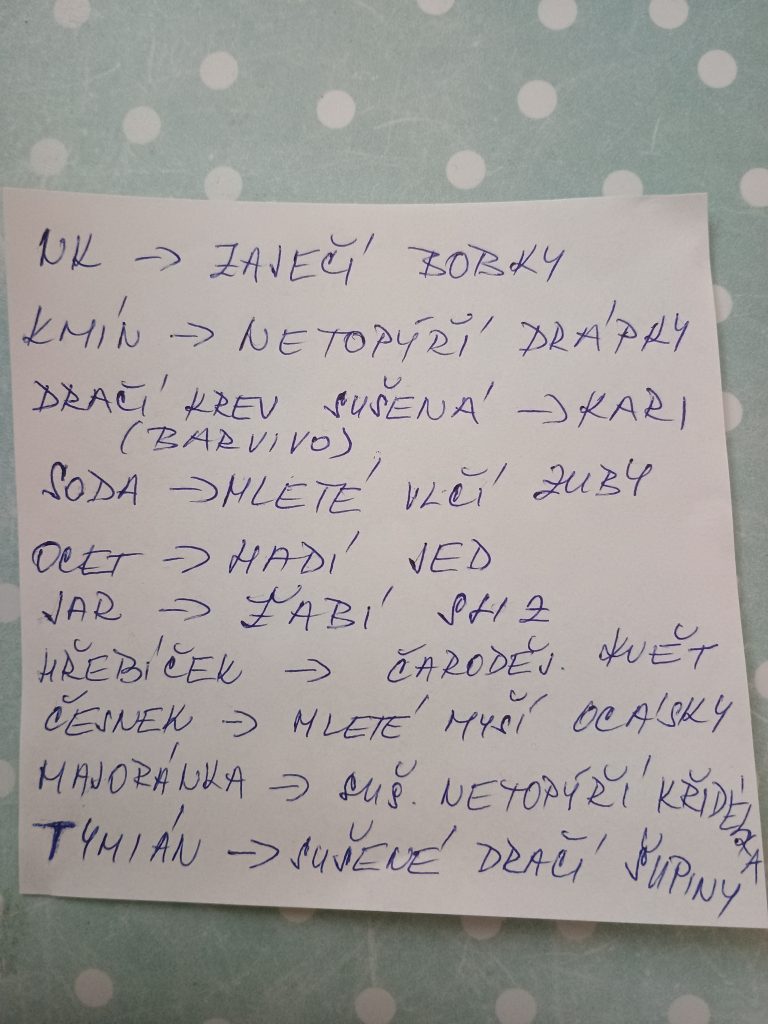 NK → ZAJEČÍ BOBKY
KMÍN → NETOPÝŘÍ DRÁPKY
DRAČÍ KREV SUŠENÁ → KARI
(BARVIVO)
SODA → MLETÉ VLČÍ ZUBY
OCET → HADÍ JED
JAR → ŽABÍ SLIZ
HŘEBÍČEK → ČARODĚJ. KVĚT
ČESNEK → MLETÉ MYŠÍ OCÁSKY
MAJORÁNKA → SUŠ. NETOPÝŘÍ KŘIDÉLKA
TYMIÁN → SUŠENÉ DRAČÍ ŠUPINY